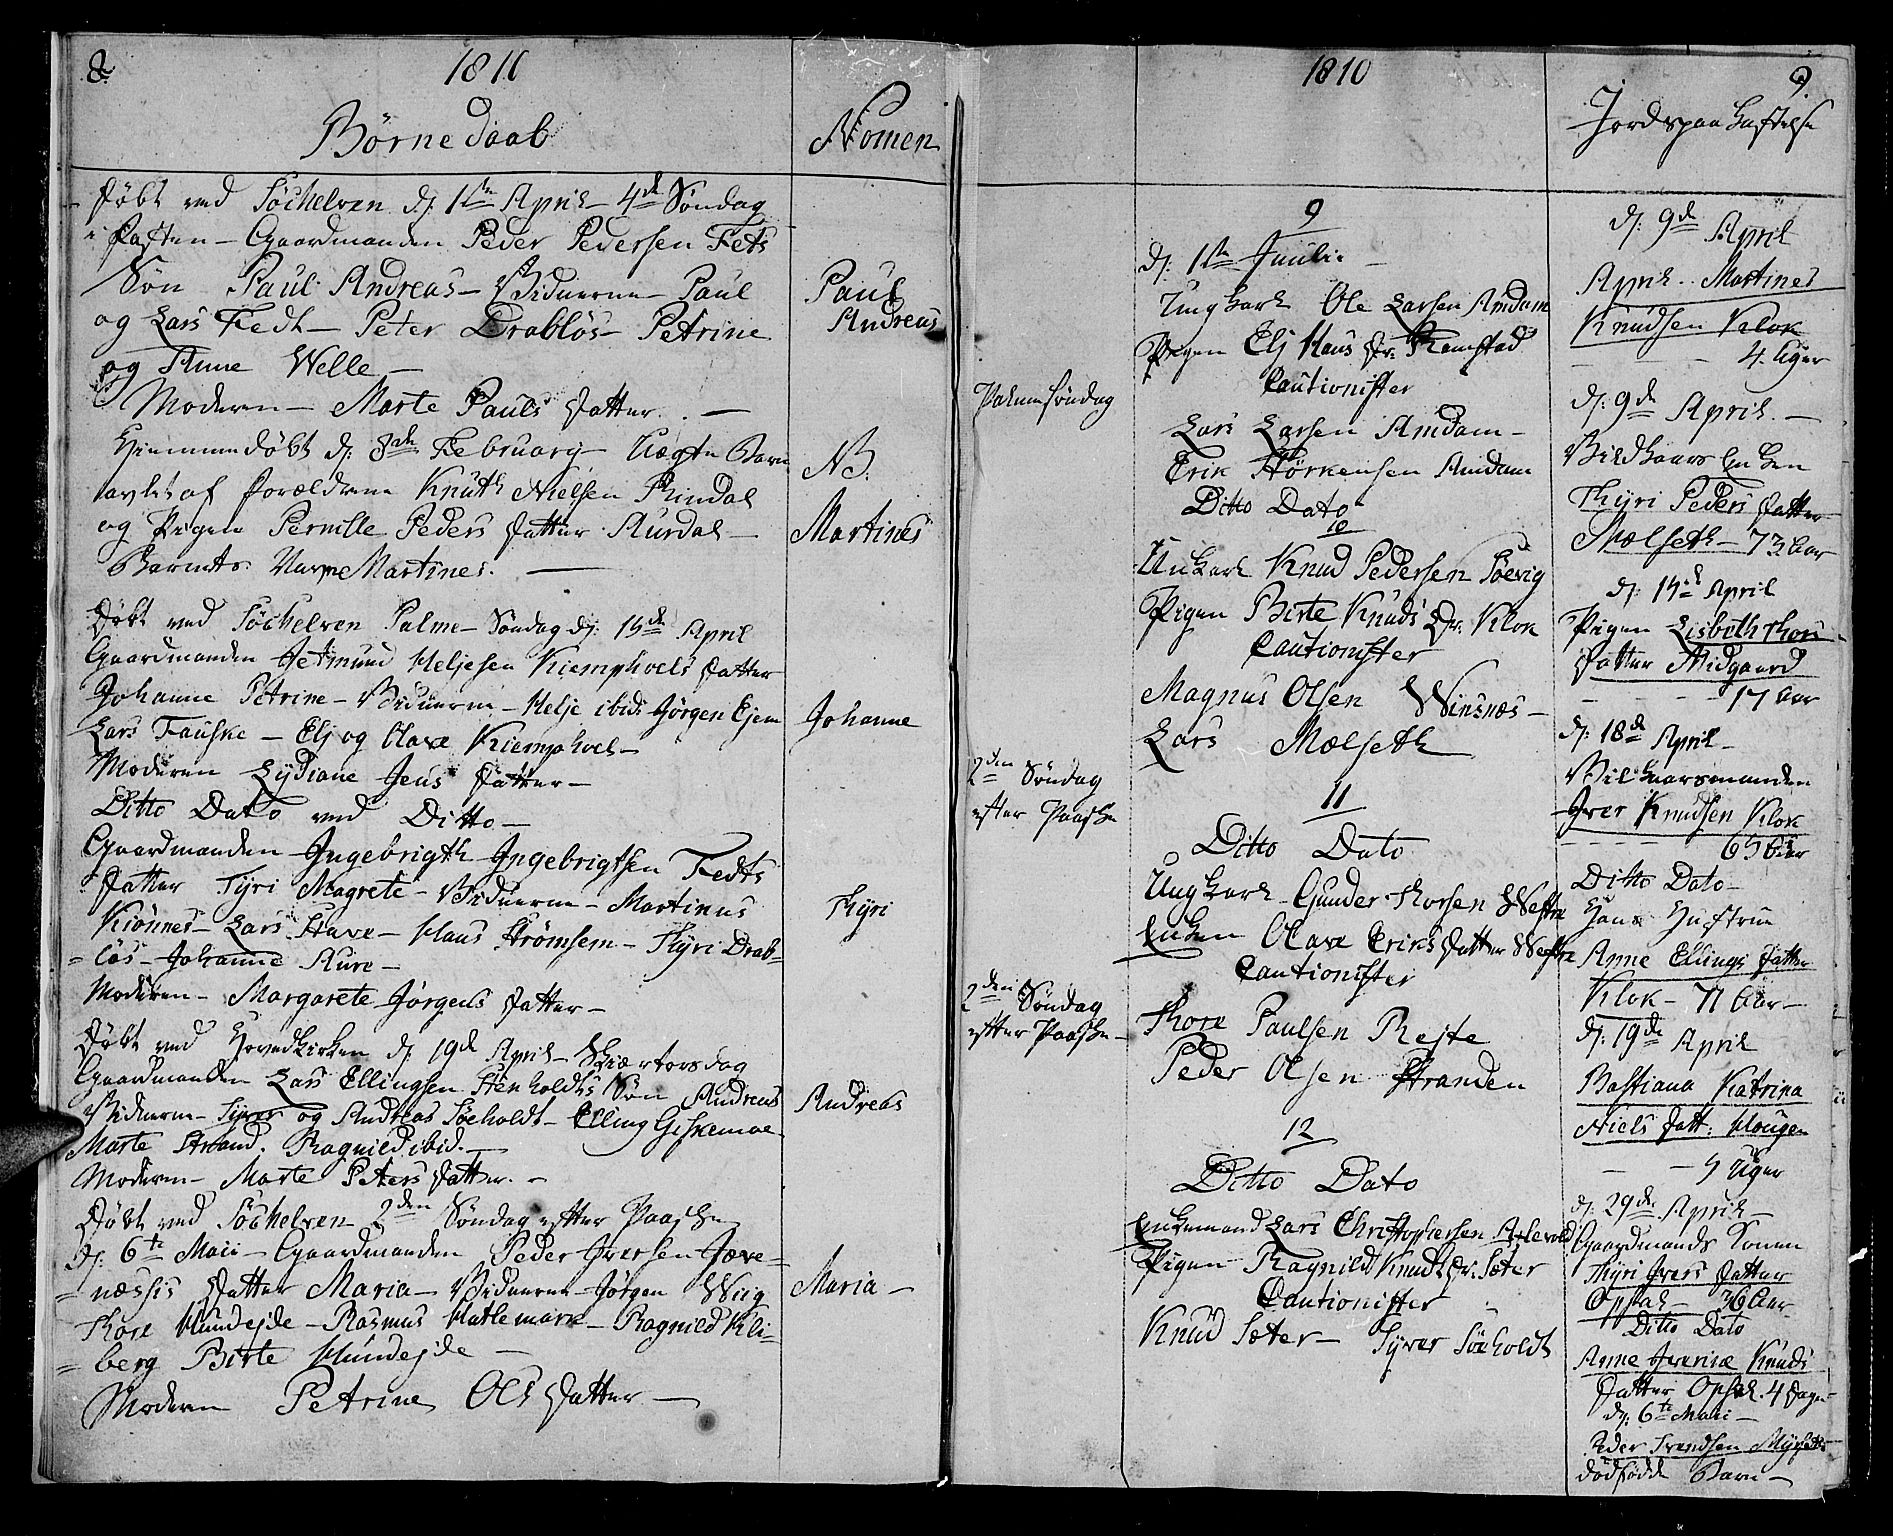 8.
1810
Børne Daab
Nomen
Døbt ved Søchelven d: 1ste April – 4de Søndag
i Fasten – Gaardmanden Peder Pedersen Fets
Søn Paul Andreas – Vidnerne – Paul
og Lars Fedt – Peter Drabløs – Petrine
og Anne Welle –
Moderen – Marte Pauls Datter. –
Paul
Andreas
Hiemmedøbt d: 8de February – Uægte Barn
avlet af Forældrene Knuth Nielsen Rindal
og Pigen Pernille Peders Datter Aurdal –
Barnets Navn Martines. –
NB.
Martines
Døbt ved Søchelven Palme – Søndag d: 15de April
Gaardmanden Jetmund Heljesen Kiemphvels Datter
Johanne Petrine – Vidnerne – Helje ibid: Jørgen Ejem
Lars Fauske – Elj og Olave Kiemphvel –
Moderen Lydiane Jens Datter –
Johanne
Ditto Dato ved Ditto –
Gaardmanden Ingebrigth Ingebrigtsen Fedts
Datter Tyri Magrete – Vidnerne – Martinus
Kiønnes – Lars Stave – Klaus Strømsem – Thyri Drab=
=løs – Johanne Aure –
Moderen – Margarete Jørgens Datter –
Thyri
Døbt ved Hovedkirken d: 19de April – Skiærtorsdag
Gaardmanden Lars Ellingsen Stenholdts Søn Andreas
Vidnerne – Syver og Andreas Søeholdt – Elling Giskemoe
Marte Strand. Ragnild ibid. –
Moderen – Marte Peters Datter. –
Andreas
Døbt ved Søchelven 2den Søndag efter Paaske
d: 6te Maii – Gaardmanden Peder Iversen Jæve=
=næssis Datter Maria – Vidnerne – Jørgen Wiig
Thore Hundejde – Rasmus Hatlemark – Ragnild Kli=
=berg Birte Hundejde –
Moderen Petrine Ols Datter –
Maria –
1810
9.
Jordspaa Kastelse
Palmesøndag
2den Søndag
efter Paaske
2den Søndag
efter Paaske –
9
d: 1ste Juulii –
Ungkarl Ole Larsen Amdam
Pigen Elj Klaus Dr. Ramstad
Cautionister
Lars Larsen Amdam –
Erik Størkersen Amdam
Ditto Dato
10
Unkarl Knud Pedersen Søevig
Pigen Birte Knuds Dr. Klok
Cautionister
Magnus Olsen Winsnæs –
Lars Mælseth
11
Ditto Dato
Ungkarl – Gunder Thorsen Westre
Enken Olave Eriks Datter Westre
Cautionister
Thore Paulsen Rejte
Peder Olsen Stranden
12
Ditto Dato
Enkemand Lars Christophersen Aslevold
Pigen Ragnild Knuds Dr. Sæter
Cautionister
Knud Sæter – Syver Søeholdt
d: 9de April
April. Martines
Knudsen Klok
– – 4 Uger
d: 9de April. –
Vilkaars Enken
Thyri Peders Datter
Mælseth – 73 Aar
d: 14de April
Pigen Lisbeth Thors
Datter Midgaard
– – – 17 Aar
d: 18de April –
Vilkaarsmanden
Iver Knudsen Klok
65 Aar
Ditto Dato –
Hans Hustrue
Anne Ellings Datter
Klok – 71 Aar –
d: 19de April
Bastiana Katrina
Niels Datt: Hougen
– – 5 Uger
d: 29de April –
Gaardmands Konen
Thyri Ivers Datter
Opsal – 36 Aar
Ditto Dato
Anne Iverine Knuds
Datter Opsal. 4 Dage
d: 6te Maii –
Peder Svendsen Myrseth
dødfødde Barn –